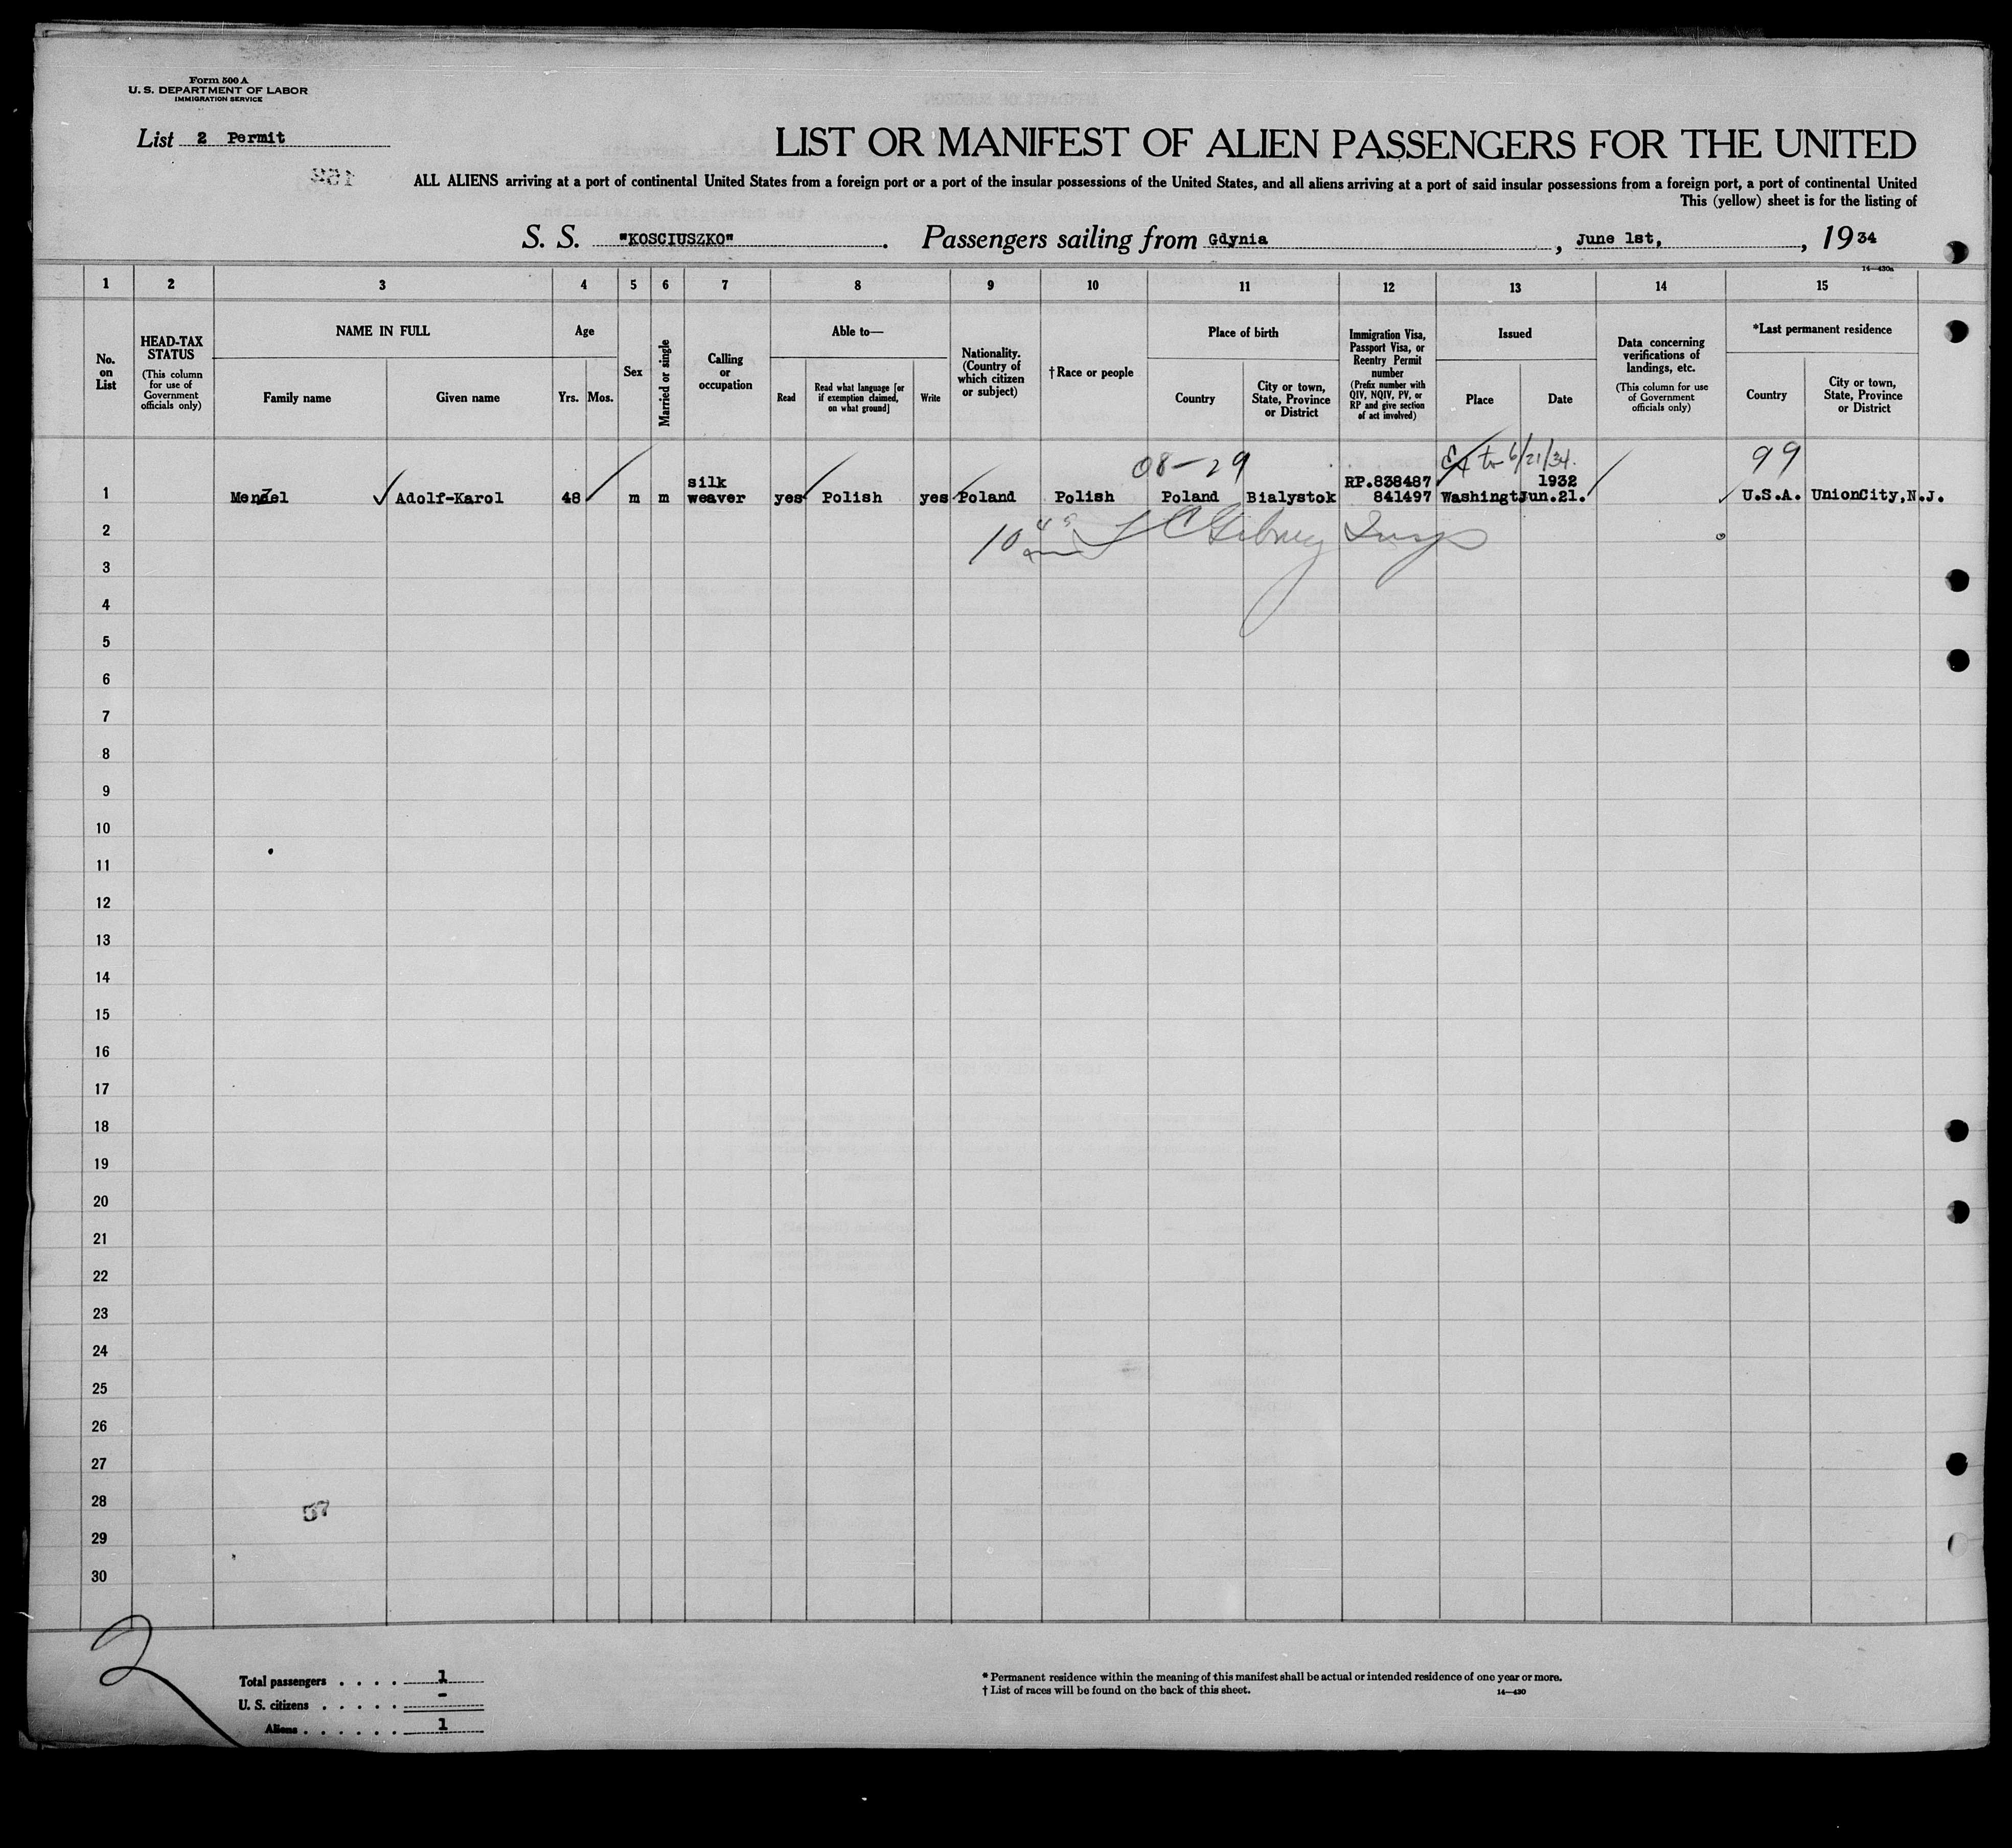 Form 500 A
U. S. DEPARTMENT OF LABOR
IMMIGRATION SERVICE
List 2 Permit
LIST OR MANIFEST OF ALIEN PASSENGERS FOR THE UNITED
ALL ALIENS arriving at a port of continental United States from a foreign port or a port of the insular possessions of the United States, and all aliens arriving at a port of said insular possessions from a foreign port, a port of continental United
This (yellow) sheet is for the listing of
S. S. "KOSCIUSZKO". Passengers sailing from Gdynia, June 1st, , 1934
14—430a
1 2 3 4 5 6 7 8 9 10 11 12 13 14 15
No. on List
HEAD-TAX STATUS
(This column for use of Government officials only)
NAME IN FULL
Family name
Given name
Age
Yrs.
Mos.
Sex
Married or single
Calling or occupation
Able to—
Read
Read what language [or if exemption claimed, on what ground]
Write
Nationality. (Country of which citizen or subject)
†Race or people
Place of birth
Country
City or town, State, Province or District
Immigration Visa, Passport Visa, or Reentry Permit number
(Prefix number with QIV, NQIV, PV, or RP and give section of act involved)
Issued
Place
Date
Data concerning verifications of landings, etc.
(This column for use of Government officials only)
*Last permanent residence
Country
City or town, State, Province or District
08-29
to 6/21/34.
99
silk
RP.838487
1932
1 Adolf-Karol 48 m m weaver yes Polish yes Poland Polish Poland Bialystok 841497 Washingt Jun.21. U.S.A. UnionCity,N.J.
2
3
4
5
6
7
8
9
10
11
12
13
14
15
16
17
18
19
20
21
22
23
24
25
26
27
28
57
29
30
2
Total passengers . . . . 1
U. S. citizens . . . . . -
Aliens . . . . . . 1
* Permanent residence within the meaning of this manifest shall be actual or intended residence of one year or more.
† List of races will be found on the back of this sheet.
14—430